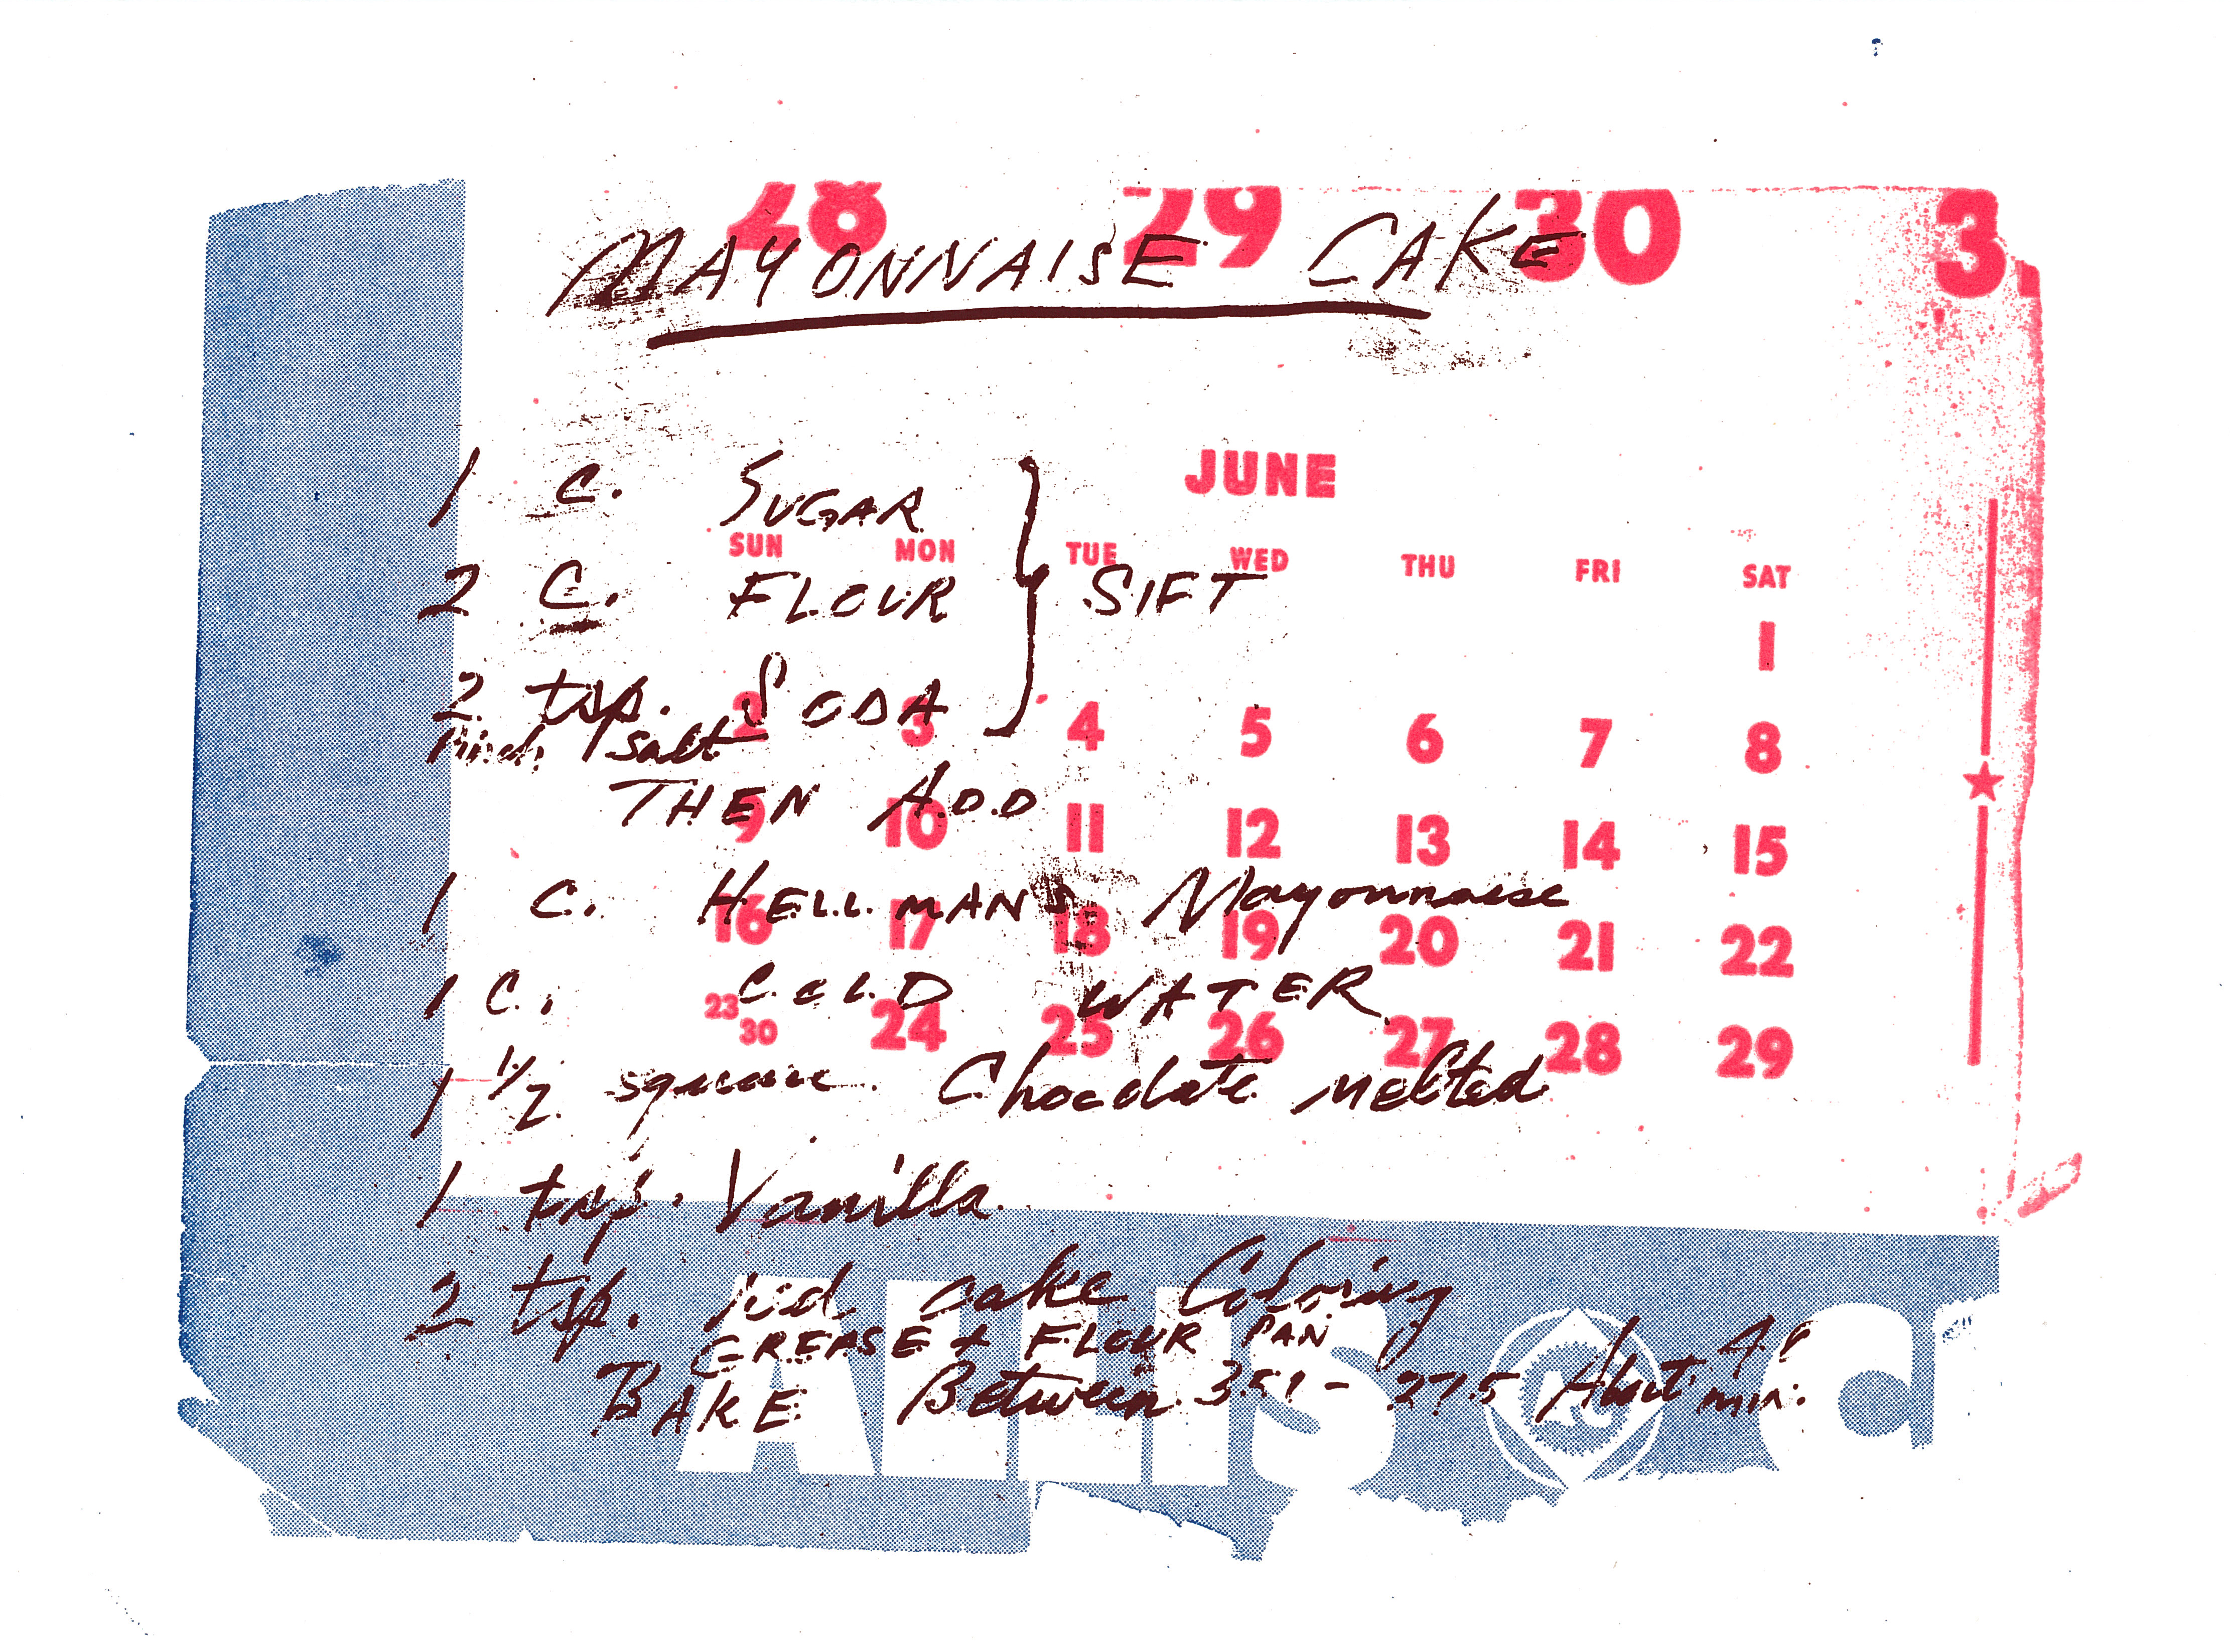 28 29 30 3
MAYONNAISE CAKE
JUNE
1 C. SUGAR
SUN MON TUE WED THU FRI SAT
2 C. FLOUR } SIFT
1
2 tsp. SODA
2 3 4 5 6 7 8
Pinch salt
THEN ADD
9 10 11 12 13 14 15
1 C. HELLMANS Mayonnaise
16 17 18 19 20 21 22
1 C. COLD WATER
23 30 24 25 26 27 28 29
1 1/2 square Chocolate melted
1 tsp. Vanilla
2 tsp. red cake Coloring
GREASE + FLOUR PAN
BAKE Between 350 - 275 About min.
ALLIS